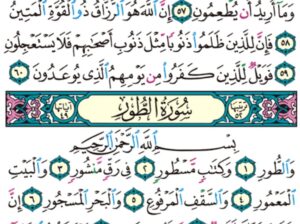 وَمَآ أُرِيدُ أَن يُطْعِمُونِ ٥٧ إِنَّ ٱللَّهَ هُوَ ٱلرَّزَّاقُ ذُو ٱلْقُوَّةِ ٱلْمَتِينُ
٥٨ فَإِنَّ لِلَّذِينَ ظَلَمُوا۟ ذَنُوبًا مِّثْلَ ذَنُوبِ أَصْحَٰبِهِمْ فَلَا يَسْتَعْجِلُونِ
٥٩ فَوَيْلٌ لِّلَّذِينَ كَفَرُوا۟ مِن يَوْمِهِمُ ٱلَّذِى يُوعَدُونَ ٦٠
ترتيبها ٥٢ سُورَةُ الطُّورِ آياتها ٤٩
بِسْمِ ٱللَّهِ ٱلرَّحْمَٰنِ ٱلرَّحِيمِ
وَٱلطُّورِ ١ وَكِتَٰبٍ مَّسْطُورٍ ٢ فِى رَقٍّ مَّنشُورٍ ٣ وَٱلْبَيْتِ
ٱلْمَعْمُورِ ٤ وَٱلسَّقْفِ ٱلْمَرْفُوعِ ٥ وَٱلْبَحْرِ ٱلْمَسْجُورِ ٦ إِنَّ